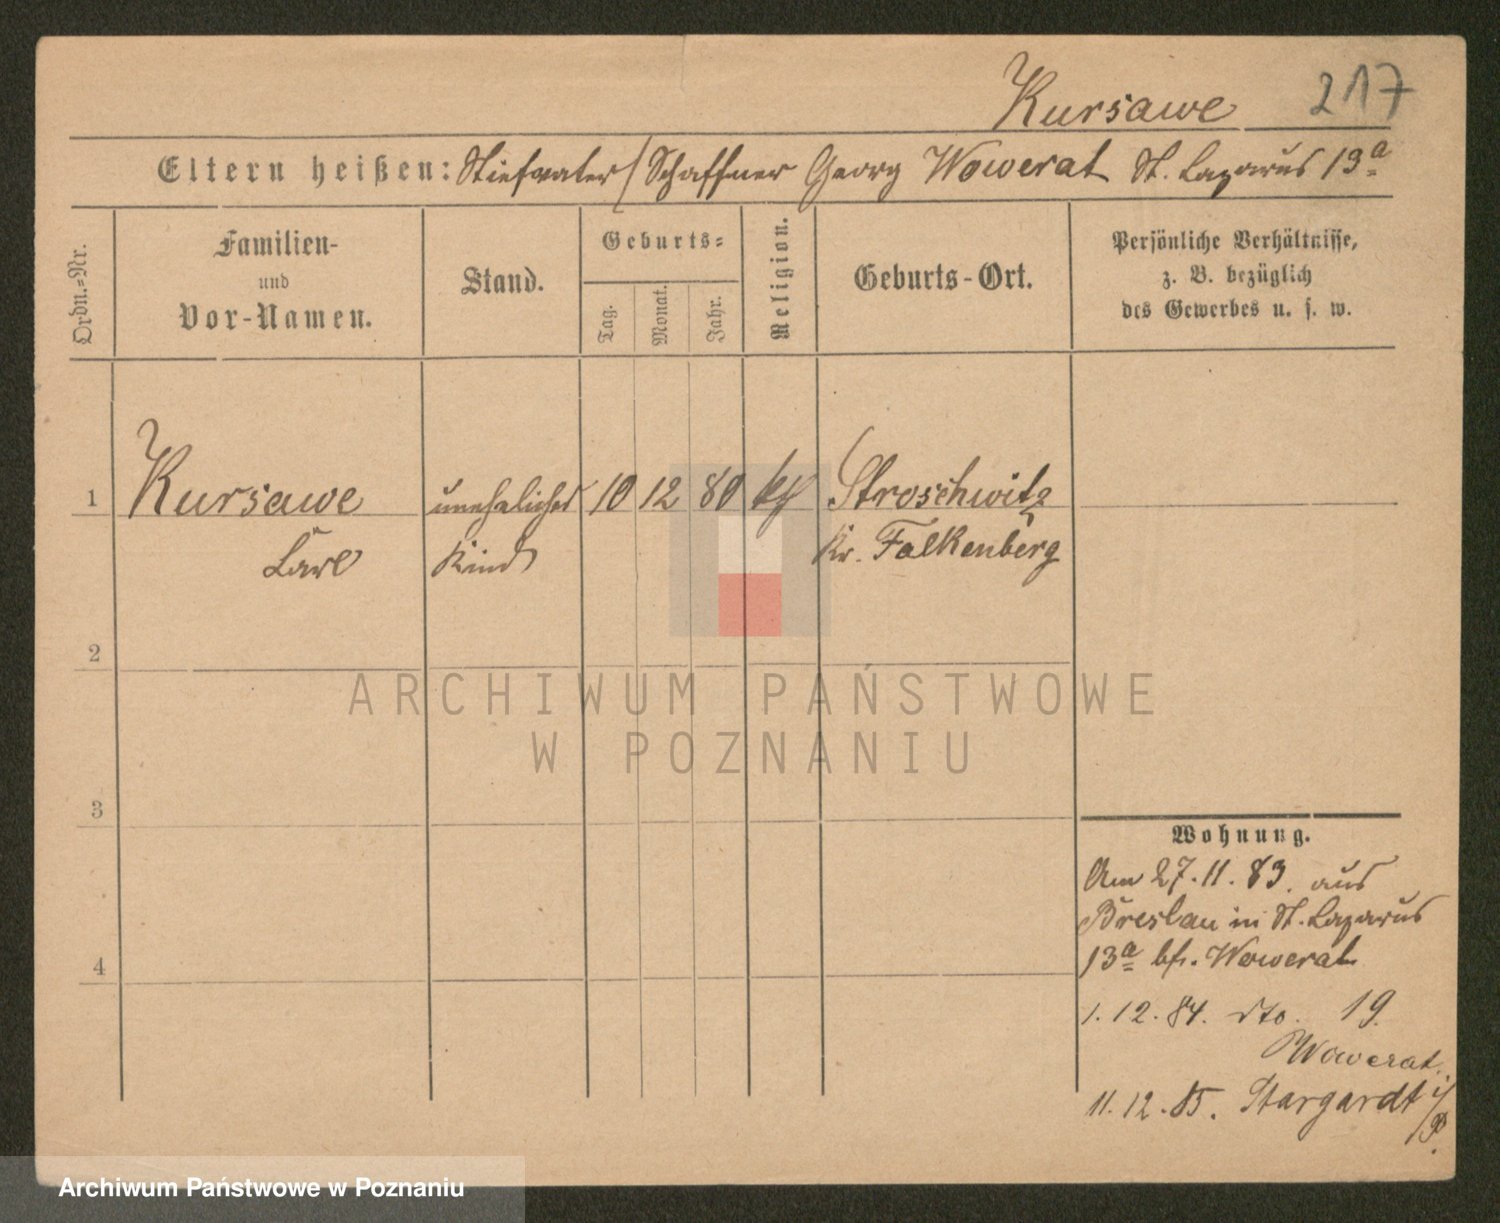 Kursawe 217
Eltern heißen: Stiefvater / Schaffner Georg Wowerat St. Lazarus 13a
Ordn.-Nr.
Familien-
und
Vor-Namen.
Stand.
Geburts-
Tag.
Monat.
Jahr.
Religion.
Geburts-Ort.
Persönliche Verhältnisse,
z. B. bezüglich
des Gewerbes u. s. w.
1 Kursawe uneheliches 10 12 80 kth Stroschwitz
Carl Kind Kr. Falkenberg
2
3
4
Wohnung.
Am 27.11.83. aus
Breslau in St. Lazarus
13a bei Wowerat
1.12.84. dto. 19.
Wowerat.
11.12.85. Stargardt i/P.
ARCHIWUM PAŃSTWOWE
W POZNANIU
Archiwum Państwowe w Poznaniu